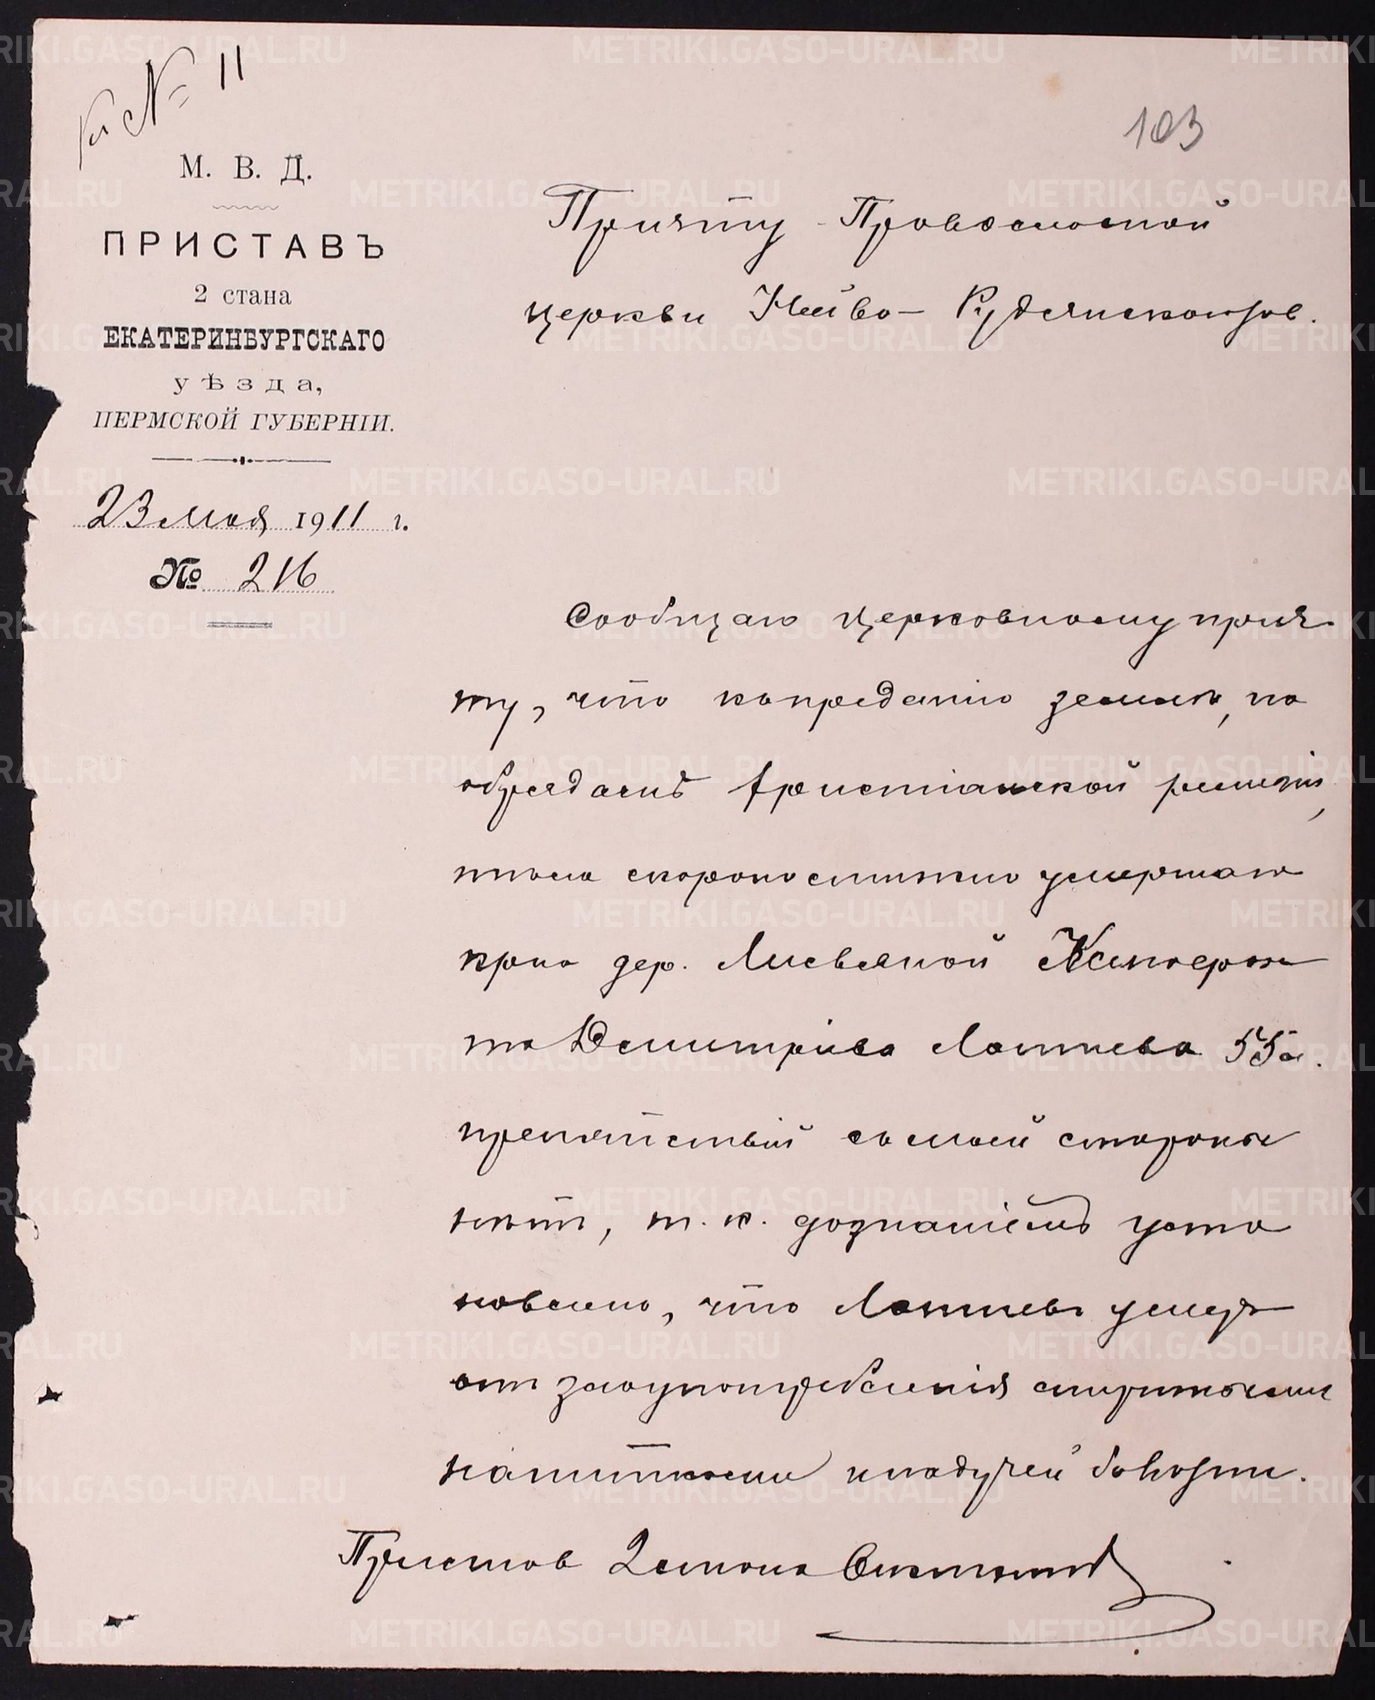 Къ № 11
103
М. В. Д.
ПРИСТАВЪ
2 стана
ЕКАТЕРИНБУРГСКАГО
уѣзда,
ПЕРМСКОЙ ГУБЕРНІИ.
23 Мая 1911 г.
№ 216
Причту Православной
церкви Нейво-Рудянскаго зав.
Сообщаю церковному прич
ту, что къ преданію землѣ, по
обрядамъ христіанской религіи,
тѣла скоропостижно умершаго
кр-на дер. Листвяной
Дмитріева Лаптева 55 л.
препятствій съ моей стороны
нѣтъ, т. к. дознаніемъ уста
новлено, что Лаптевъ умеръ
отъ злоупотребленія спиртными
напитками и падучей болѣзни.
Приставъ 2 стана
METRIKI.GASO-URAL.RU